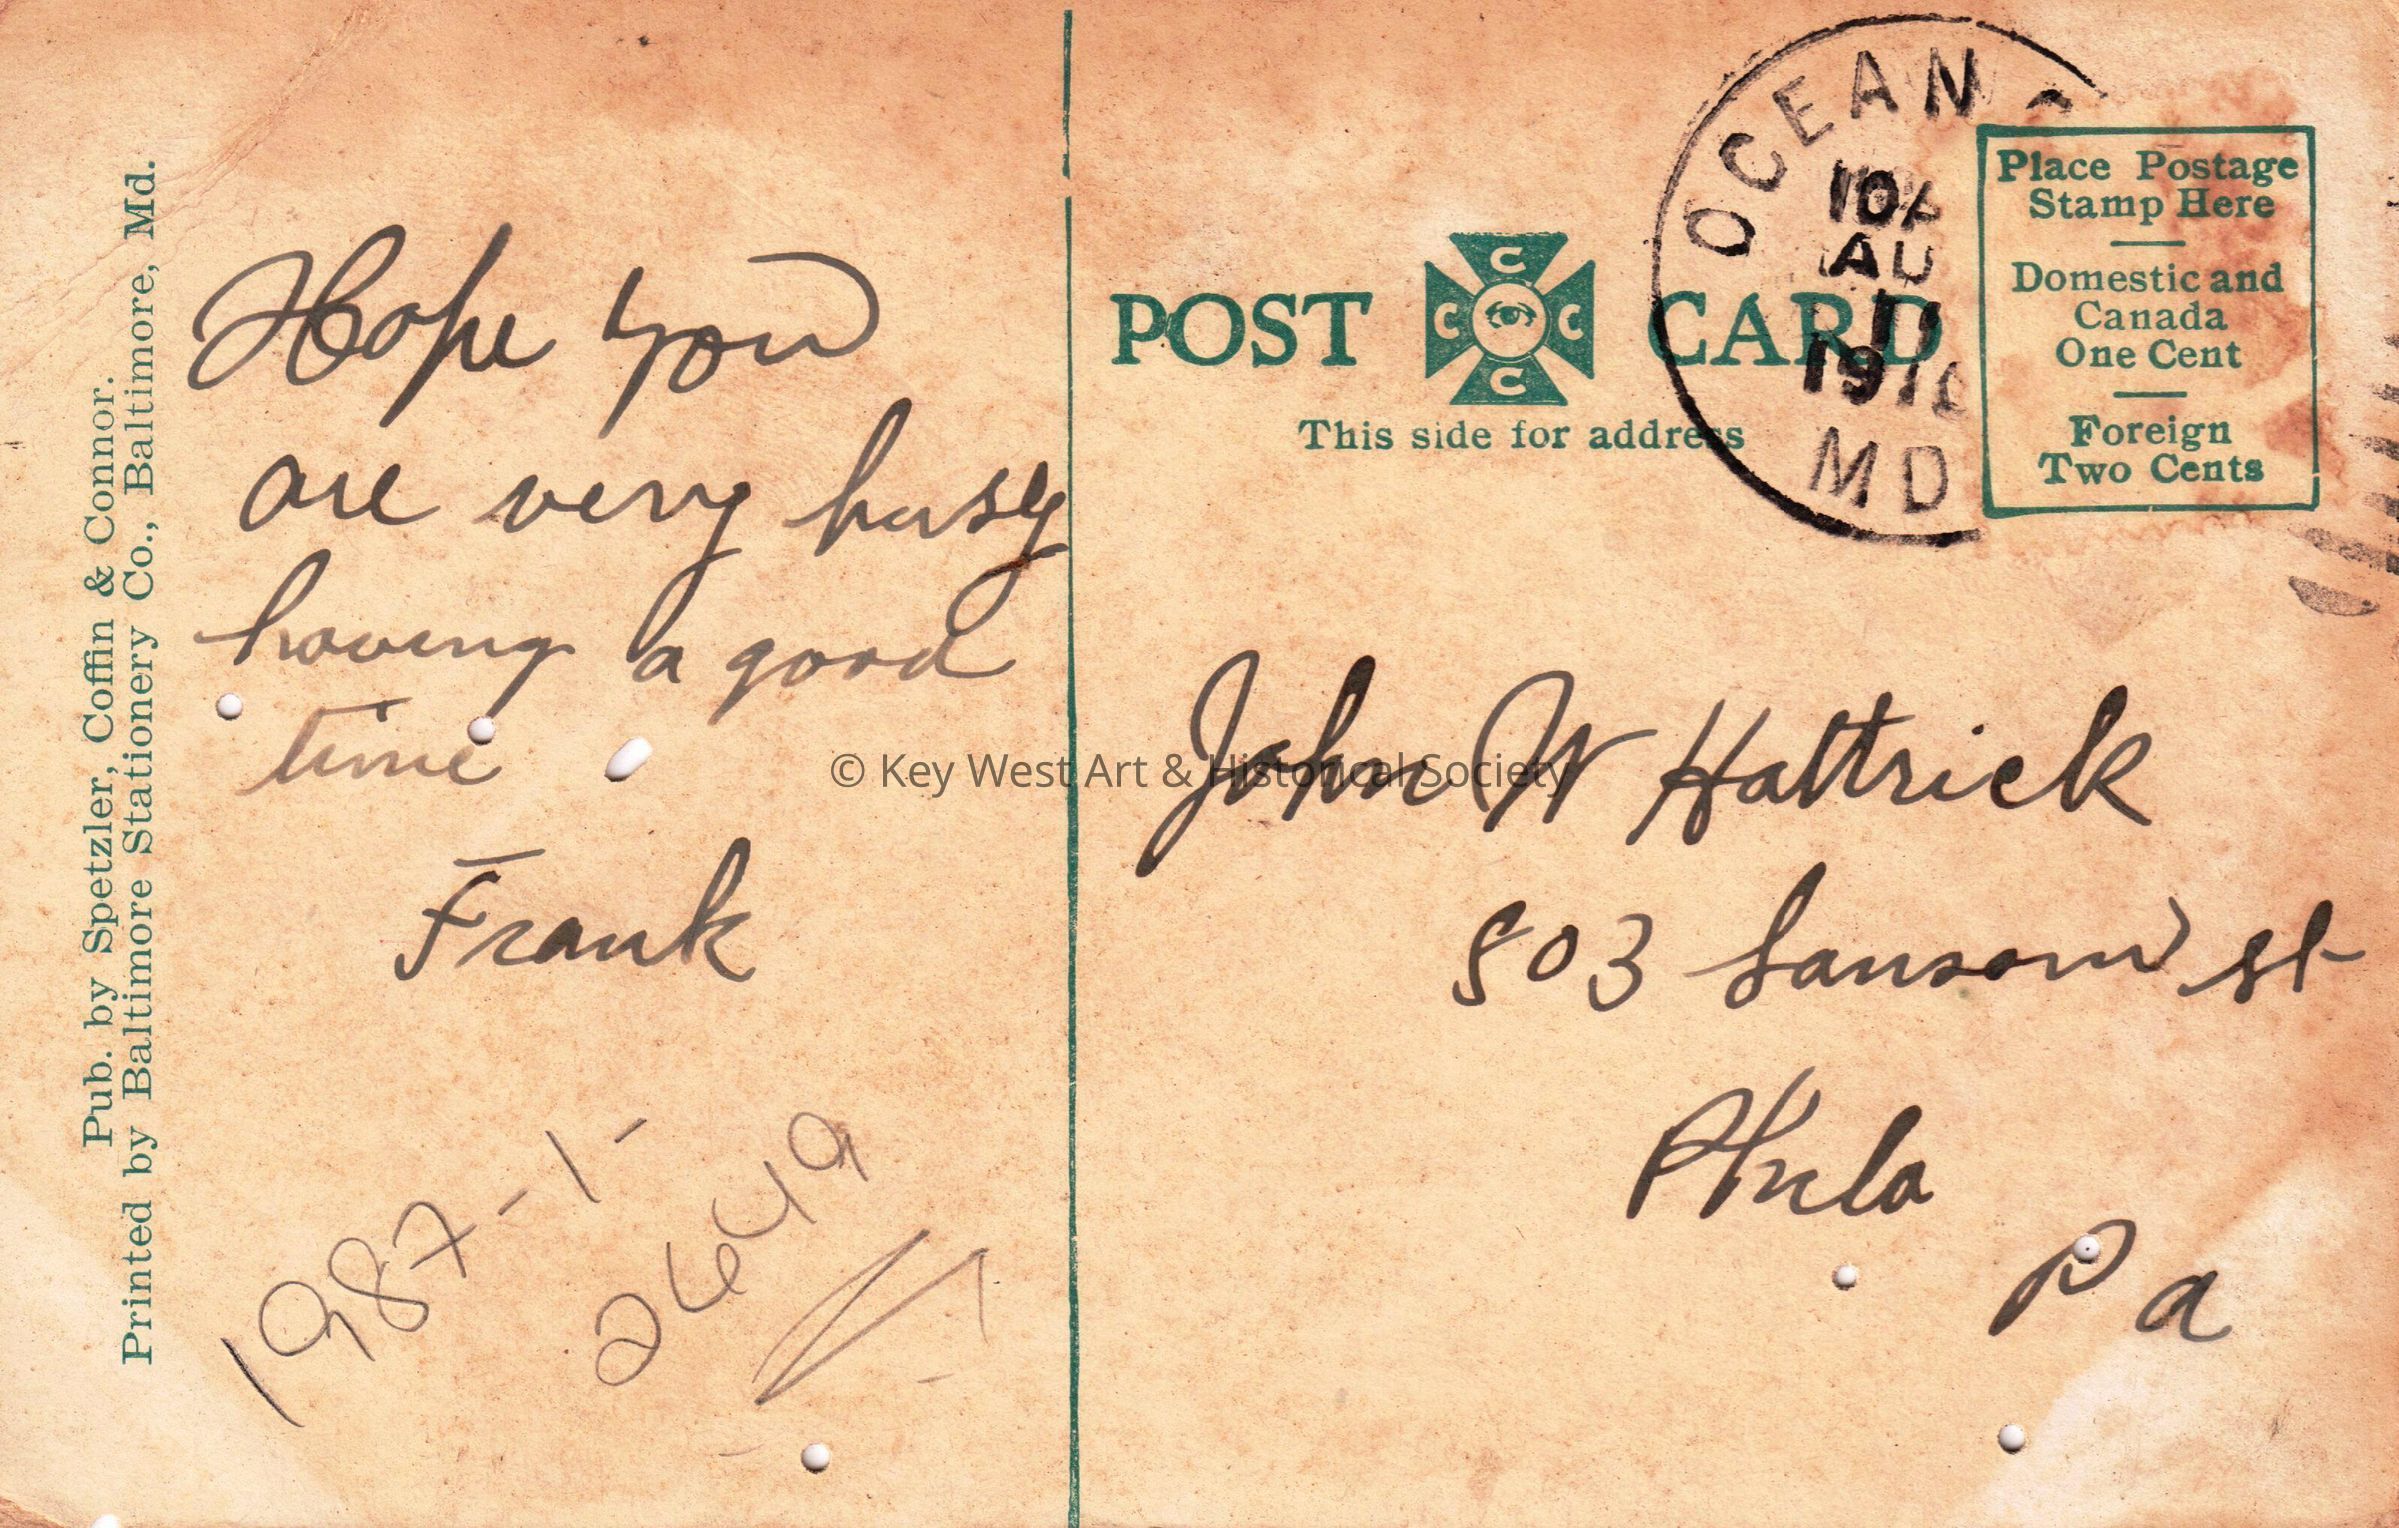 Pub. by Spetzler, Coffin & Connor.
Printed by Baltimore Stationery Co., Baltimore, Md.
Hope you
are very busy
having a good
time
Frank
1987-1-
2649
POST CARD
C C C C
This side for address
OCEAN
10A
AU
11
MD
Place Postage
Stamp Here
Domestic and
Canada
One Cent
Foreign
Two Cents
John W Hattrick
803 Sansom st
Phila
Pa
© Key West Art & Historical Society